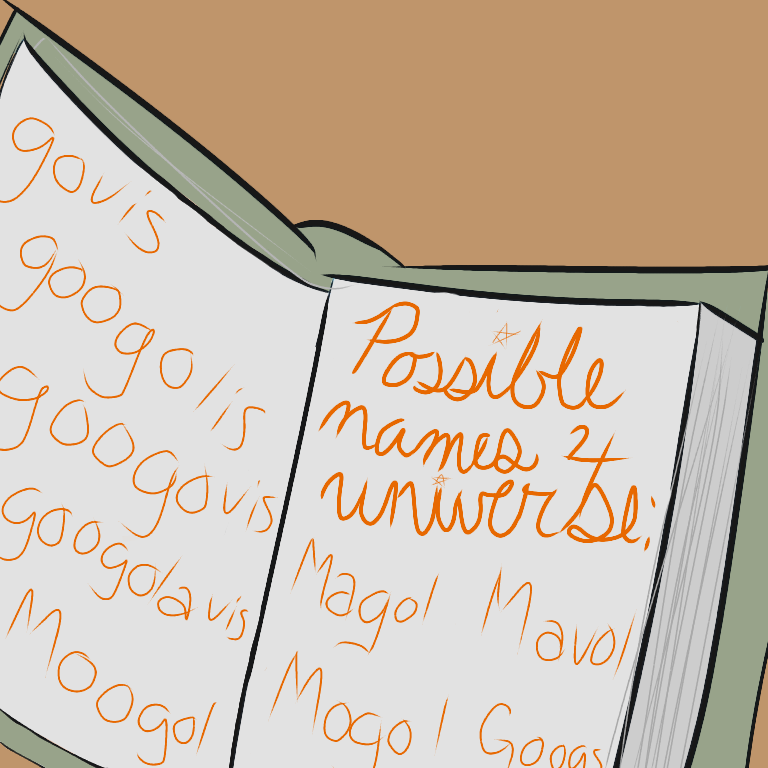 govis
googolis
googovis
googolavis
Moogol
Possible
names 4
universe:
Magol Mavol
Mogol Googs